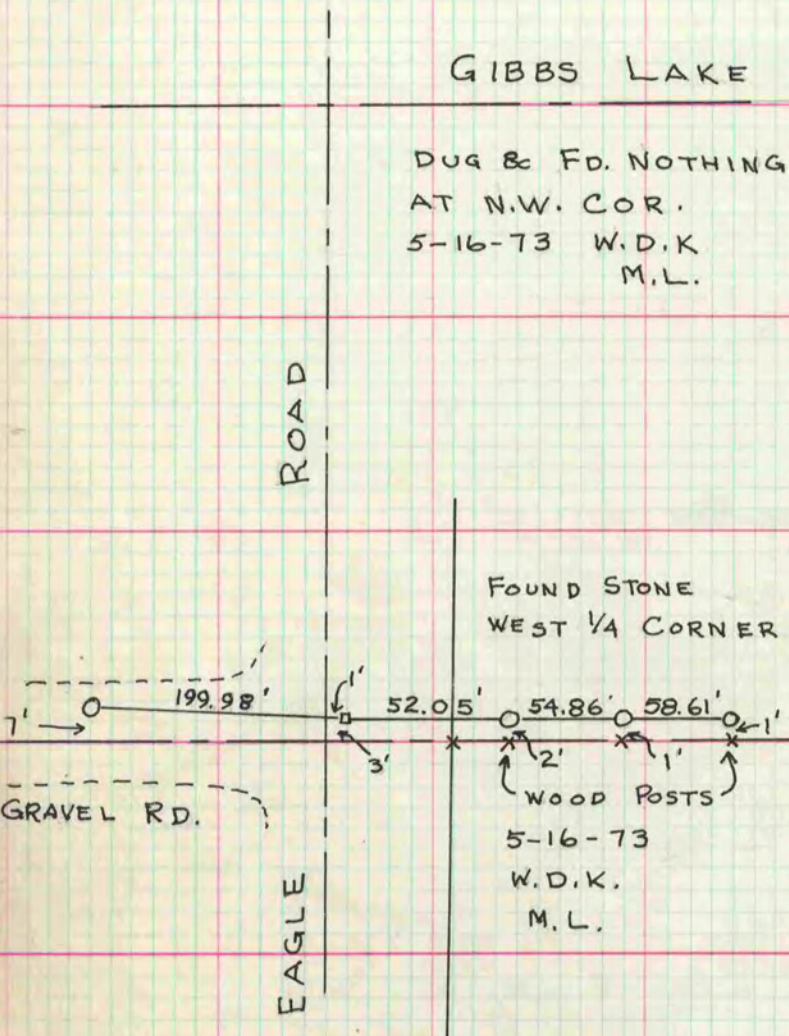 GIBBS LAKE
DUG & FD. NOTHING
AT N.W. COR.
5-16-73 W.D.K
M.L.
ROAD
FOUND STONE
WEST 1/4 CORNER
199.98'
1'
52.05'
54.86'
58.61'
7'
3'
2'
1'
1'
GRAVEL RD.
WOOD POSTS
5-16-73
W.D.K.
M.L.
EAGLE